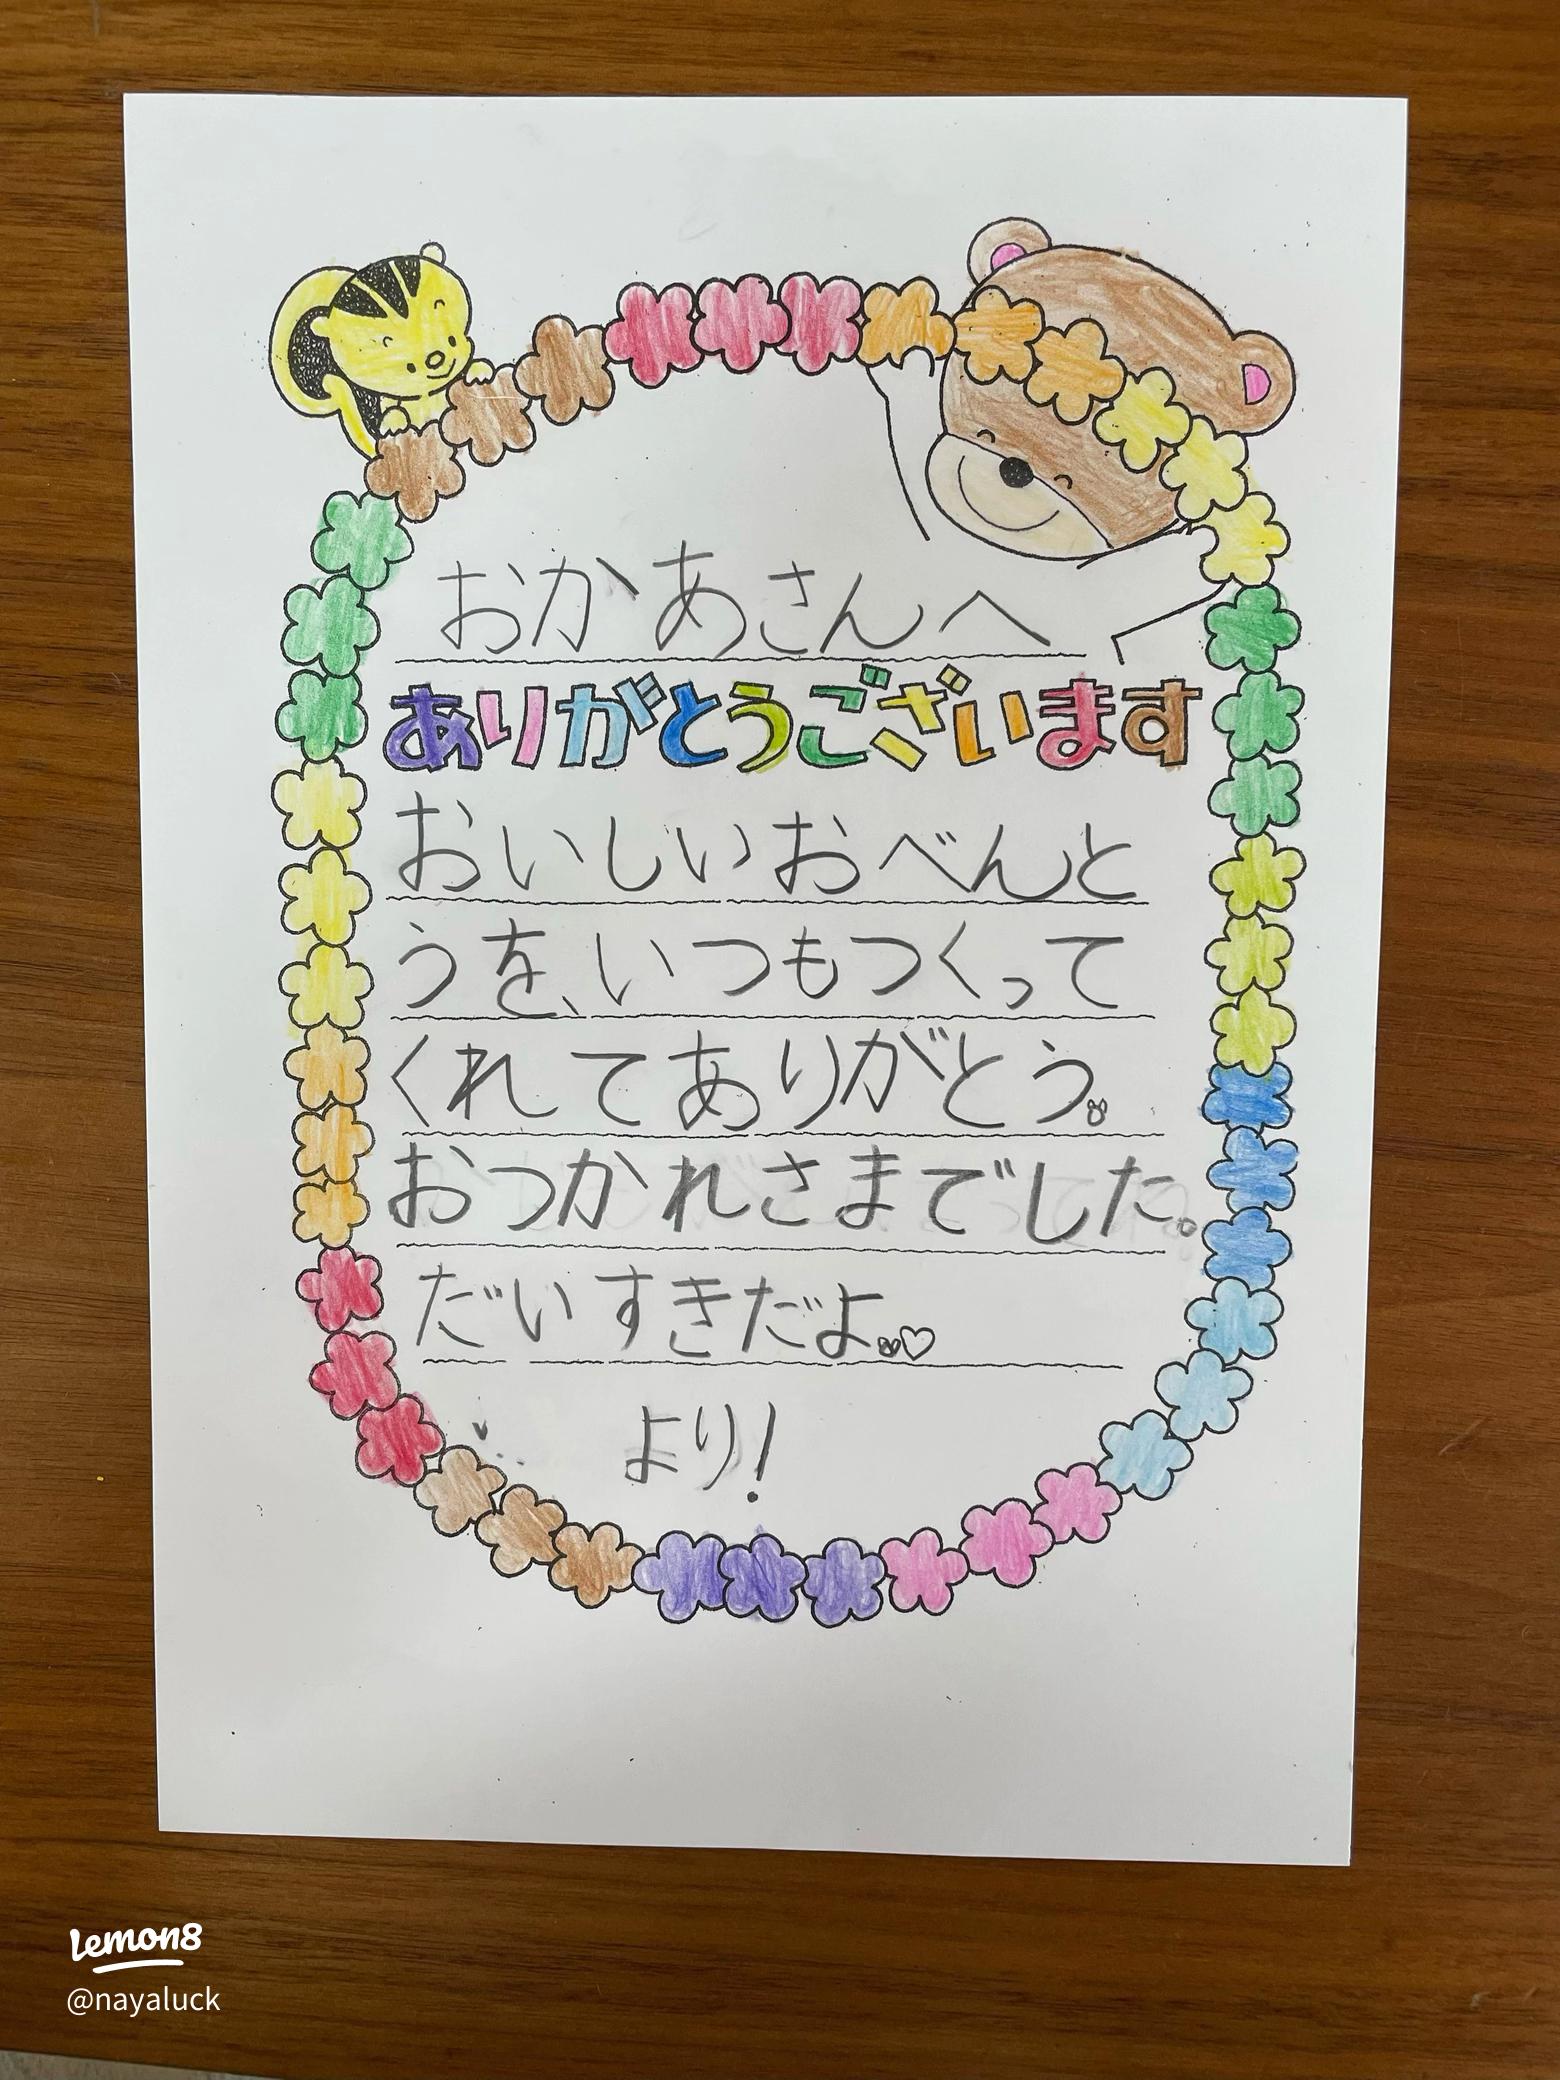 おかあさんへ
ありがとうございます
おいしいおべんと
うを、いつもつくって
くれてありがとう。
おつかれさまでした。
だいすきだよ。♡
より!
Lemon8
@nayaluck